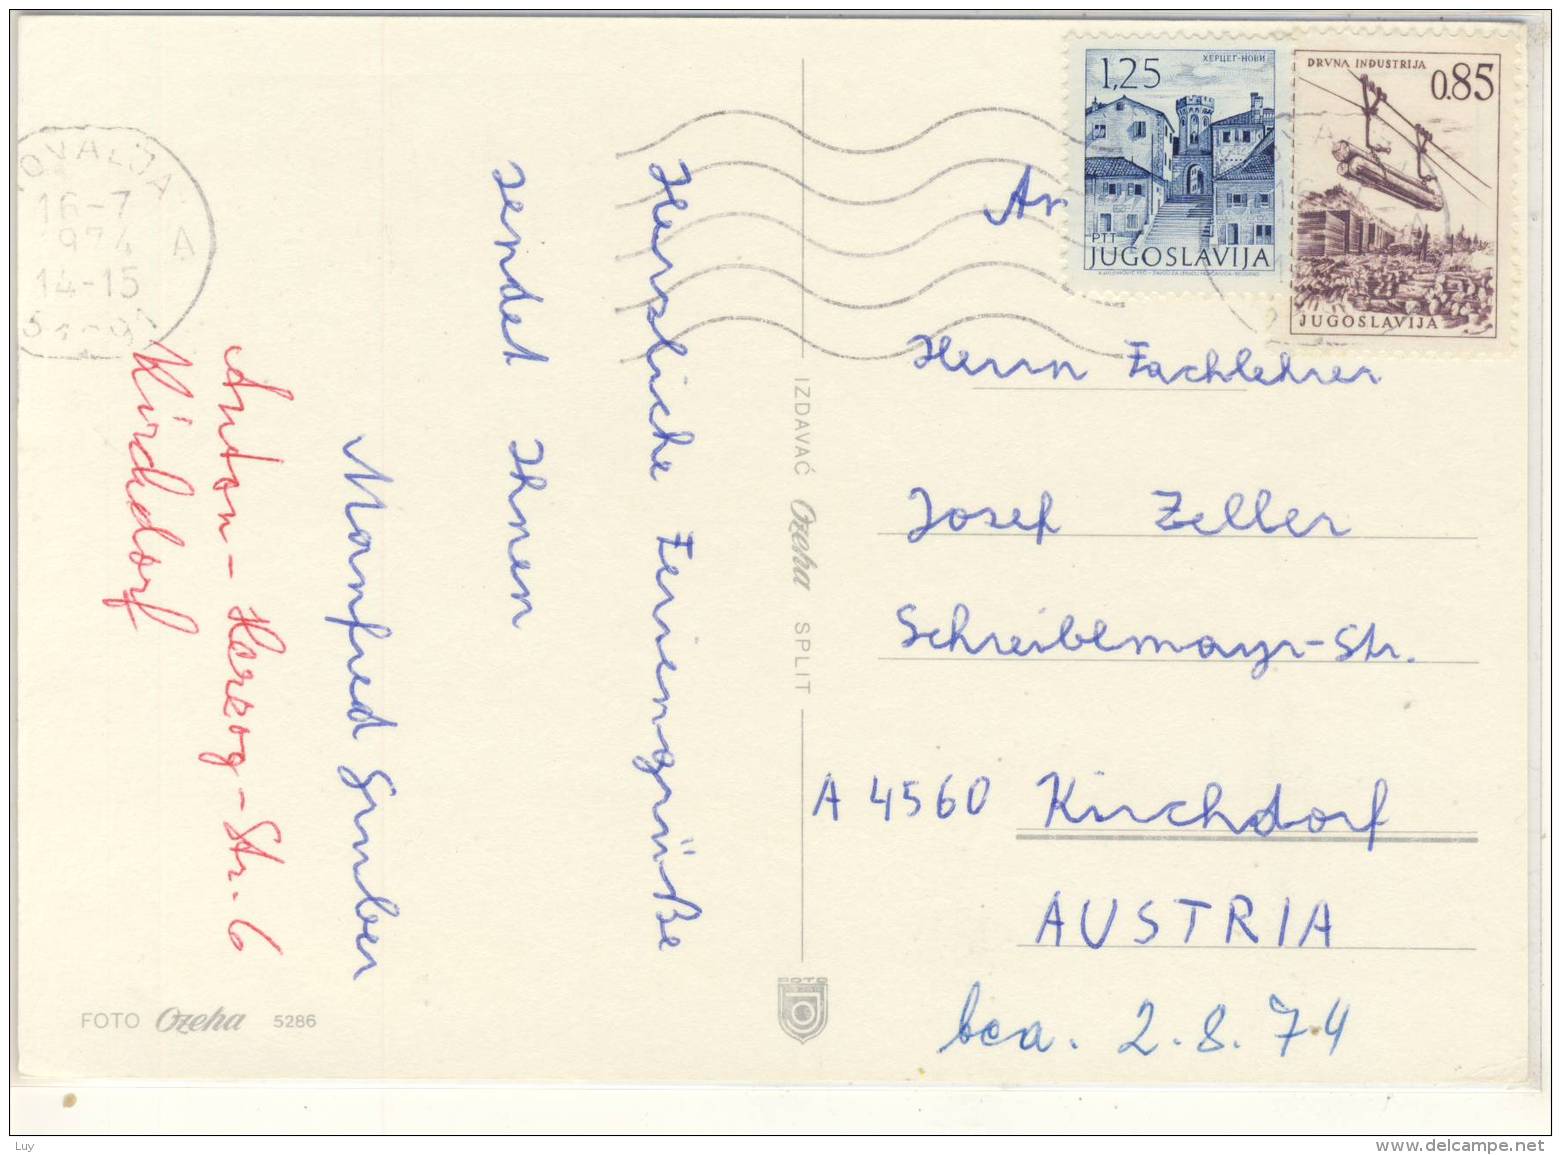 ХЕРЦЕГ-НОВИ
1,25
PTT
JUGOSLAVIJA
DRVNA INDUSTRIJA
0.85
JUGOSLAVIJA
OVALJA
16-7
1974
14-15
A
Herzliche Feriengrüße
sendet Ihnen
Manfred Gruber
Anton-Herzog-Str. 6
Kirchdorf
IZDAVAČ Ozeha SPLIT
An
Herrn Fachlehrer
Josef Zeller
Schreiblmayr-Str.
A 4560 Kirchdorf
AUSTRIA
bea. 2.8.74
FOTO Ozeha 5286
FOTO
Luy
www.delcampe.net